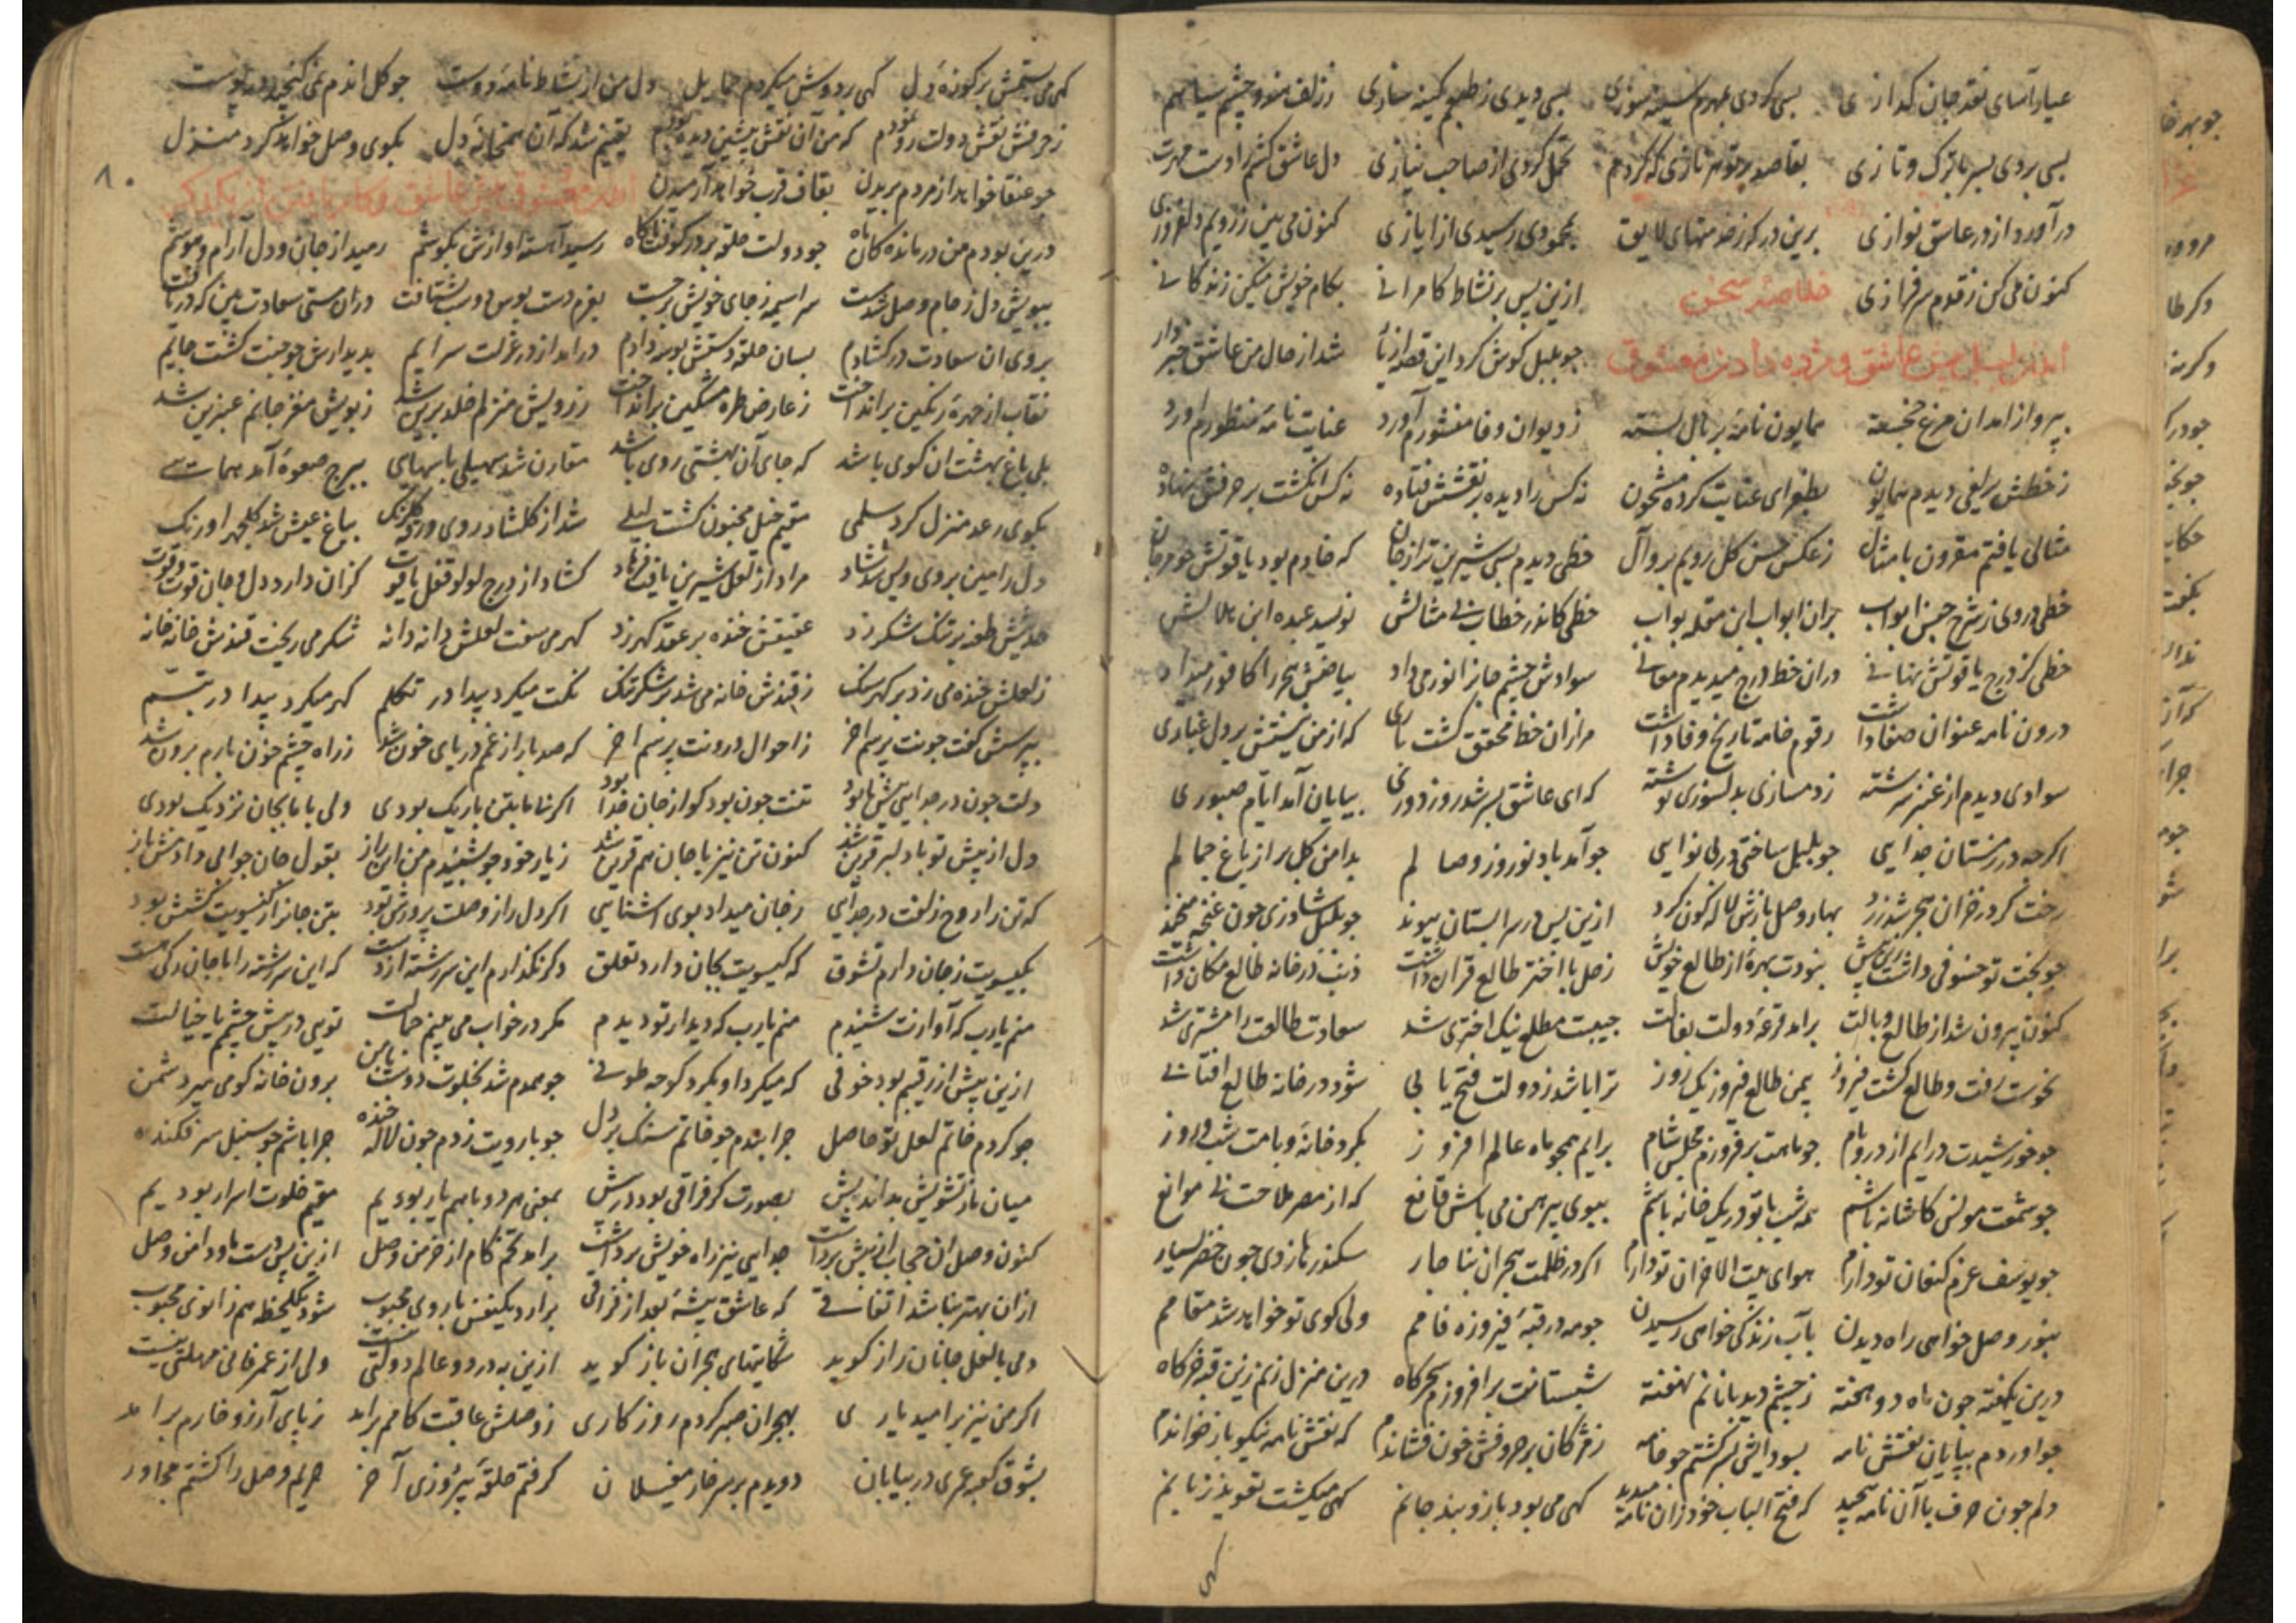 عیار آسای نقد جان کدازی بسی کردی بسی دیدی کینه سازی ز زلف چشم سیاهم
بسی بردی بسر با ترک و تازی بقاصد نازی که کردم تحمل کردی از صاحب نیازی دل عاشق
درآورد از در عاشق نوازی برین در که بمحمودی رسیدی از ایازی کنون می بین ز رویم
کنون می کن ز قدوم سرفرازی خلاصه سخن ازین پس بر نشاط کامرانی بکام خویش میکن زندکانی
آمدن بلبل پیش عاشق و مژده دادن معشوق چو بلبل کوش کرد این قصه شد از حال من عاشق خبردار
بپرواز آمد آن مرغ خجسته همایون نامه بر بال بسته ز دیوان وفا منشورم آورد عنایت نامه منظورم آورد
ز خطش دیدم همایون بطغرای عنایت کرده مشحون نه کس را دیده بر نقشش فتاده نه کس انکشت بر حرفش نهاده
مثالی یافتم مقرون بامثال ز عکس حسن کل رویم خطی دیدم بسی شیرین تر از جان که خادم بود یاقوتش
خطی در وی ز شرح حسن ابواب بران ابواب ابن مقله بواب خطی کاندر خطا بی مثالش نویسد عبده ابن هلالش
خطی کز درج یاقوتش نهانی دران خط درج میدیدم معانی سوادش چشم جانرا نور می داد بیاضش هجر را کافور میداد
درون نامه عنوان صفا داشت رقوم خامه تاریخ وفا داشت مرا زان خط محقق کشت باری که از من نیستش بر دل غباری
سوادی دیدم از عنبر سرشته ز دمسازی بدلسوزی نوشته که ای عاشق بسر شد روز دوری بپایان آمد ایام صبوری
اکرچه در زمستان جدایی چو بلبل ساختی در بی نوایی چو آمد باد نوروز وصالم بدامن کل بر از باغ جمالم
رخت کر در خزان هجر شد زرد بهار وصل بازش لاله کون کرد ازین پس در سرابستان پیوند چو بلبل چون غنچه میخند
چو بختت تو خسوفی داشت زین پیش نبودت بهرهٔ از طالع خویش زحل با اختر طالع قران داشت ذنب در خانه طالع مکان داشت
کنون بیرون شد از طالع وبالت برآمد قرعهٔ دولت بفالت جبینت مطلع نیک اختری شد سعادت طالعت را مشتری شد
نحوست رفت و طالع کشت فیروز بیمن طالع فیروز یک روز ترا باشد ز دولت فتح بابی شود در خانه طالع آفتابی
چو خورشیدت درآیم از در و بام چو ماهت برفروزم مجلس شام برآیم همچو ماه عالم افروز بکرد خانه و بامت شب و روز
چو شمعت مونس کاشانه باشم همه شب با تو در یک خانه باشم ببوی پیرهن می باش قانع که از مصر ملاحت بی موانع
چو یوسف عزم کنعان تو دارم هوای بیت الاحزان تو دارم اکر در ظلمت هجران بناچار سکندر چون خضر بسیار
بنور وصل خواهی راه دیدن بآب زندکی خواهی رسیدن چو مه در قبهٔ فیروزه فامم ولی کوی تو خواهد شد مقامم
درین یکهفته چون ماه دو هفته ز چشم دیدبانانم نهفته شبستانت برافروزم سحرکاه درین منزل زنم زرین قبه خرکاه
چو آوردم بپایان نقش نامه بسودایش سر کشتم چو خامه ز مژکان بر حروفش خون فشاندم که نقش نامه نیکو باز خواندم
دلم چون حرف با آن نامه پیچید که فتح الباب خود زان نامه میدید کهی می بود بازوبند جانم کهی میکشت تعویذ زبانم
کهی
٨٠
کهی می بستمش بر کوزهٔ دل کهی بر دوش میکردم حمایل دل من از نشاط نامهٔ دوست چو کل اندم نمی کنجید در پوست
ز حرفش نقش دولت رو نمودم که من آن نقش پیشین دیده بودم یقینم شد که آن همخانهٔ دل بکوی وصل خواهد کرد منزل
چو عنقا خواهد از مردم بریدن بقاف قرب خواهد آرمیدن آمدن معشوق پیش عاشق و کام یافتن از یکدیکر
درین بودم من درمانده کان ماه چو دولت حلقه بر در کوفت ناکاه رسید آهسته آوازش بکوشم رمید از جان و دل آرام و هوشم
ببویش دل ز جام وصل شد مست سراسیمه ز جای خویش برجست بعزم دست بوس وی شتافت دران مستی سعادت بین که دریافت
بروی آن سعادت در کشادم بسان حلقه دستش بوسه دادم درآمد از در عزلت سرایم بدیدارش چو جنت کشت جایم
نقاب از چهره رنکین برانداخت ز عارض طره مشکین برانداخت ز رویش منزلم خلد برین شد ز بویش مغز جانم عنبرین شد
بلی باغ بهشت آن کوی باشد که جای آن بهشتی روی باشد مقارن شد سهیلی با سهایی ببرج صعوهٔ آمد همایی
بکوی رعد منزل کرد سلمی مقیم خیل مجنون کشت لیلی شد از کلشاد روی ورقه کلرنک بباغ عیش شد کلچهر اورنک
دل رامین بروی ویس شد شاد مراد از لعل شیرین یافت فرهاد کشاد از درج لولو قفل یاقوت کزان دارد دل و جان قوت و قوت
حدیثش طعنه بر تنک شکر زد عقیقش خنده بر عقد کهر زد کهر می سفت لعلش دانه دانه شکر می ریخت قندش خانه خانه
ز لعلش خنده می زد بر کهر سنک ز قندش خانه می شد بر شکر تنک نکت میکرد پیدا در تکلم کهر میکرد پیدا در تبسم
بپرسش کفت چونت پرسم آخر ز احوال درونت پرسم آخر که صد بار از غم دریای خون شد ز راه چشم خون بارم برون شد
دلت چون در جدایی پیش ما بود تنت چون بود کو از جان جدا بود اکر ما با بتن باریک بودی ولی با ما بجان نزدیک بودی
دل از پیش تو با دلبر قرین شد کنون تن نیز با جان هم قرین شد ز یار خود چو بشنیدم من این راز بقول جان جوابی دادمش باز
که تن را روح زلفت در جدایی ز جان میداد بوی آشنایی اکر دل را ز وصلت پرورش بود بتن جانرا ز کیسویت کشش بود
بکیسویت ز جان دارم تشوق که کیسویت بجان دارد تعلق وکر نکذارم این سررشته از دست که این سررشته را با جان رکی هست
منم یارب که آوازت شنیدم منم یارب که دیدار تو دیدم مکر در خواب می بینم جمالت تویی در پیش چشمم یا خیالت
ازین پیش از رقیبم بود خوفی که میکرد او بکرد کوچه طوفی چو همدم شد بخلوت دوست با من برون خانه کو می میر دشمن
چو کردم خاتم لعل تو حاصل چرا بندم چو خاتم سنک بر دل چو با رویت زدم چون لاله خنده چرا باشم چو سنبل سر فکنده
میان ما ز تشویش بداندیش بصورت کر فراقی بود در پیش بمعنی هر دو با هم یار بودیم مقیم خلوت اسرار بودیم
کنون وصل آن حجاب از پیش برداشت جدایی نیز راه خویش برداشت برآمد تخم کام از خرمن وصل ازین پس دست ما و دامن وصل
ازان بهتر نباشد اتفاقی که عاشق پیشهٔ بعد از فراقی برآرد یکنفس با روی محبوب شود یکلحظه هم زانوی محبوب
دمی با لعل جانان راز کوید شکایتهای هجران باز کوید ازین به در دو عالم دولتی نیست ولی از عمر فانی مهلتی نیست
اکر من نیز بر امید یاری بهجران صبر کردم روزکاری ز وصلش عاقبت کامم برآمد ز پای آرزو خارم برآمد
بشوق کعبه عمری در بیابان دویدم بر سر خار مغیلان کرفتم حلقهٔ پیروزی آخر حریم وصل را کشتم مجاور